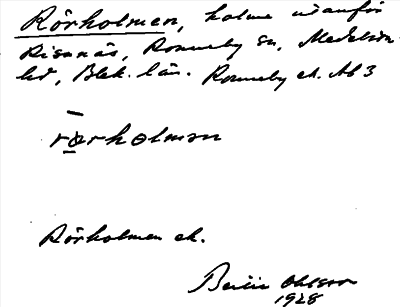 Rörholmen, holme utanför
Risanäs, Ronneby sn, Medelsta
hd, Blek. län. Ronneby ek. AB 3
rörholmən
Rörholmen ek.
Ohlsson
1928